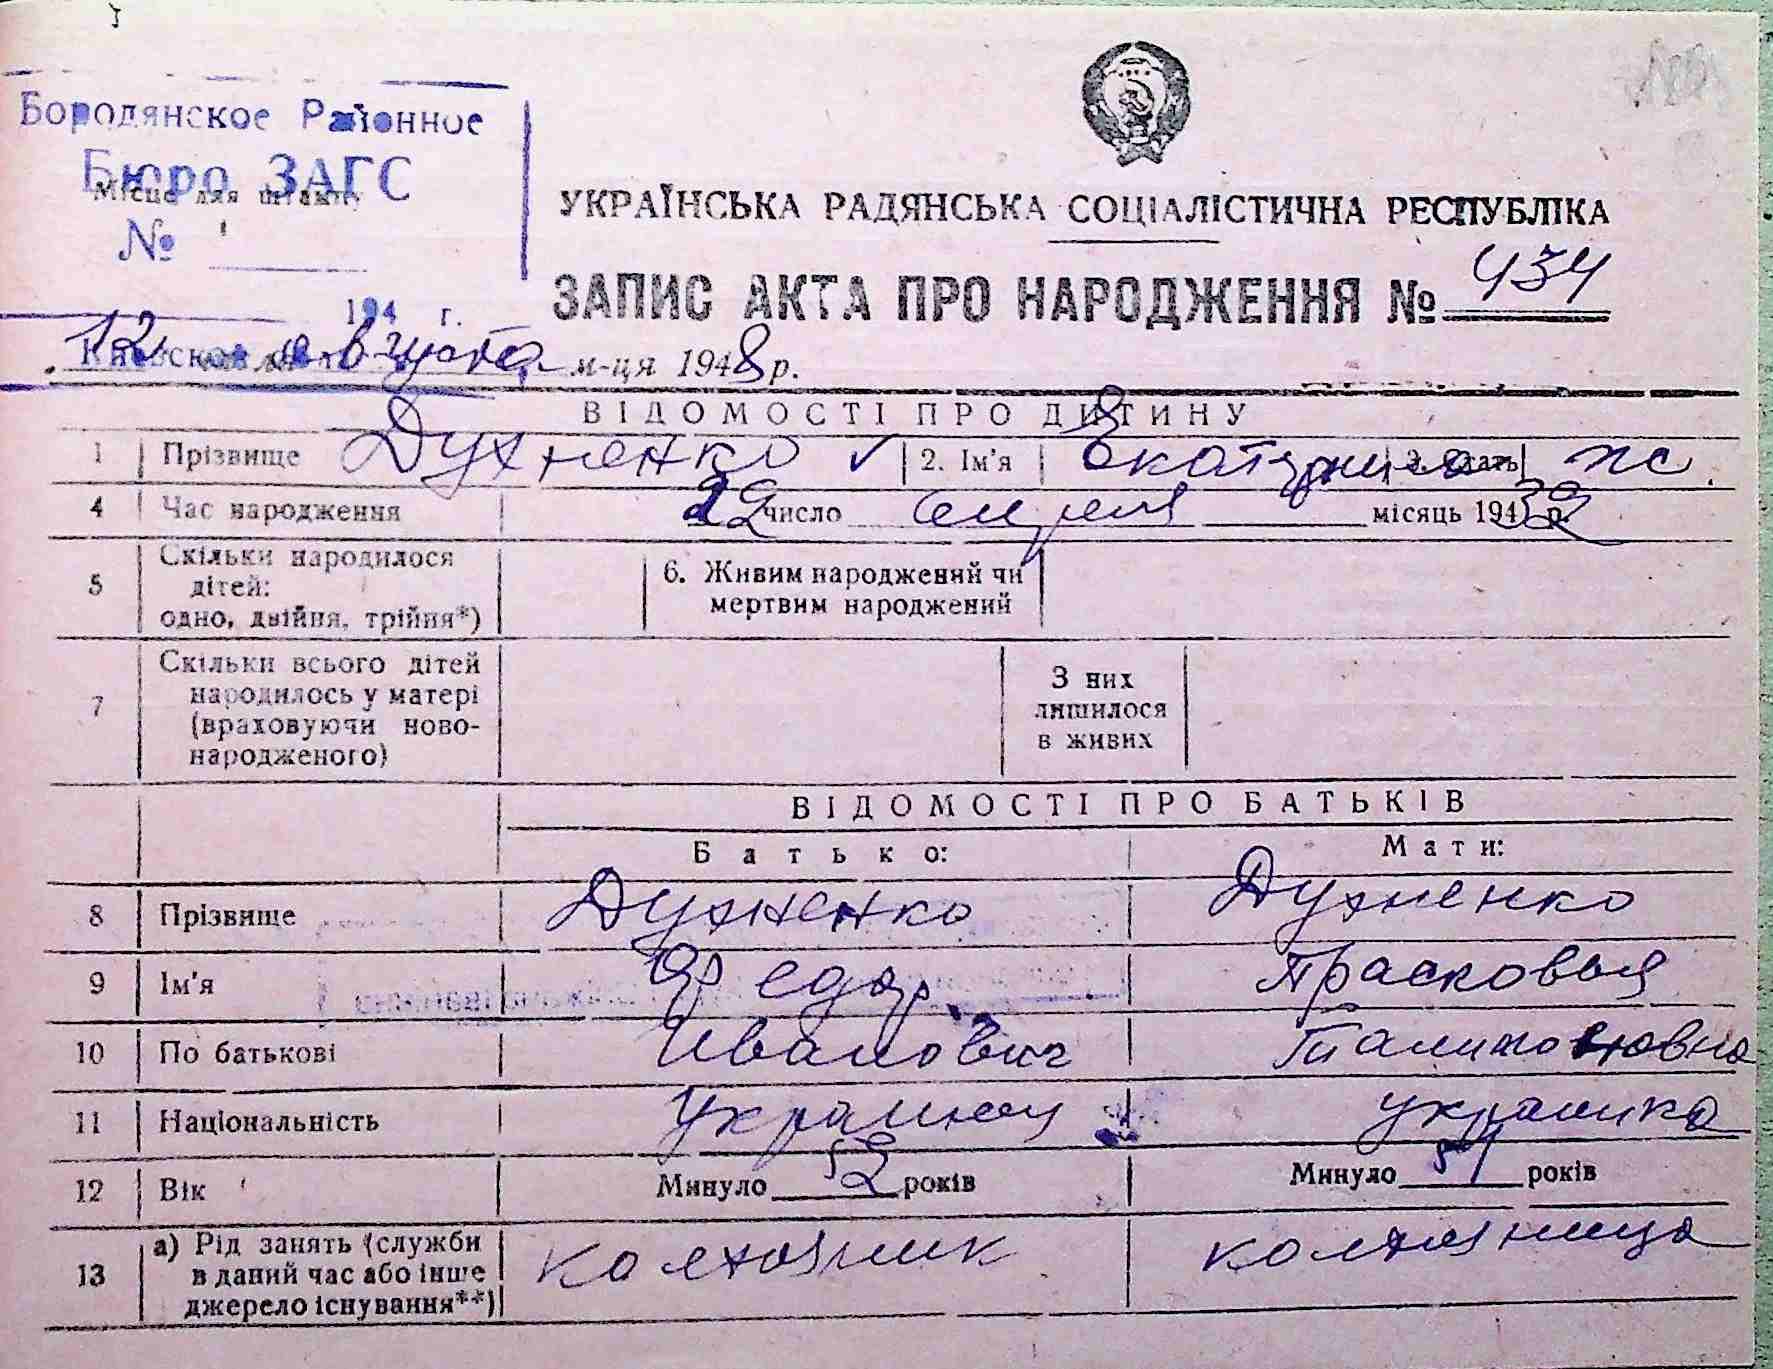 Бородянское Районное
Бюро ЗАГС
Місце для штампу
№
194 г.
УКРАЇНСЬКА РАДЯНСЬКА СОЦІАЛІСТИЧНА РЕСПУБЛІКА
ЗАПИС АКТА ПРО НАРОДЖЕННЯ № 434
12 августа м-ця 1948 р.
ВІДОМОСТІ ПРО ДИТИНУ
1 Прізвище Духненко 2. Ім'я Екатерина 3. Стать ж
4 Час народження 22 число апреля місяць 1932 р.
5 Скільки народилося дітей: одно, двійня, трійня*) 6. Живим народжений чи мертвим народжений
7 Скільки всього дітей народилось у матері (враховуючи ново-народженого) З них лишилося в живих
ВІДОМОСТІ ПРО БАТЬКІВ
Батько: Мати:
8 Прізвище Духненко Духненко
9 Ім'я Федор Прасковья
10 По батькові Иванович
11 Національність Украинец украинка
12 Вік Минуло 52 років Минуло 51 років
13 а) Рід занять (служби в даний час або інше джерело існування**) колхозник колхозница